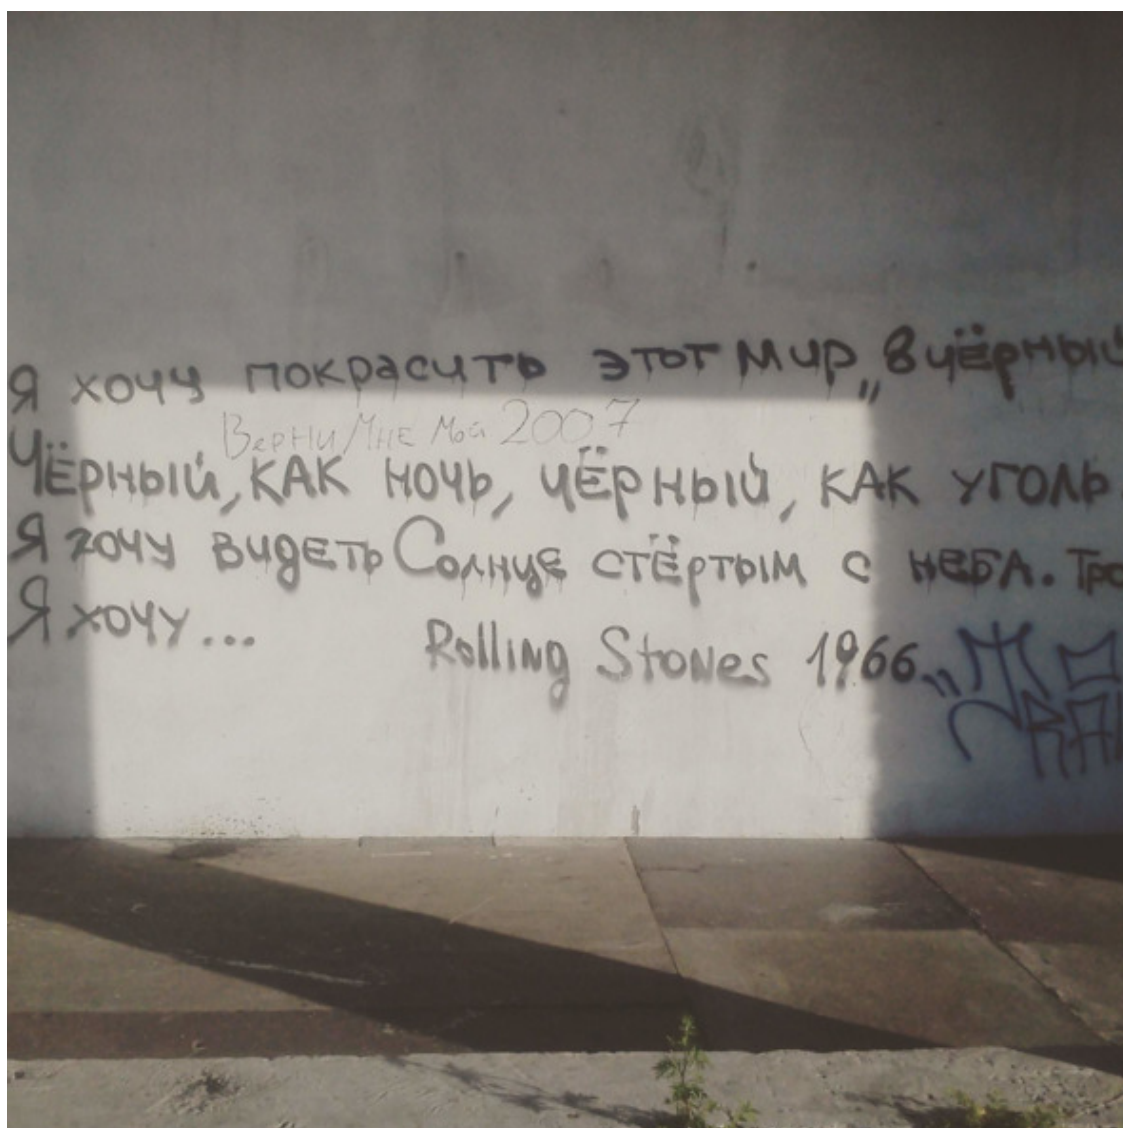 Я хочу покрасить этот мир „в чёрный
Верни Мне Мой 2007
Чёрный, как ночь, чёрный, как уголь
Я хочу видеть Солнце стёртым с неба.
Я хочу...
Rolling Stones 1966„